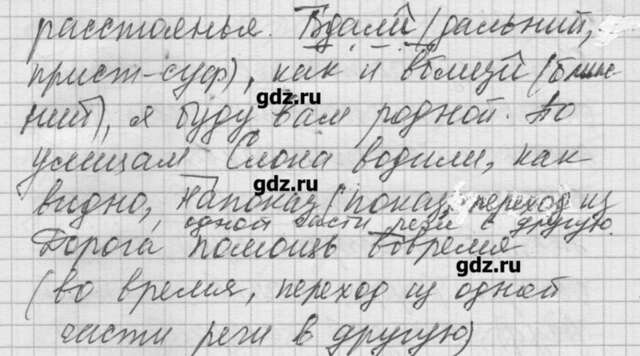 расстоянья. Вдали (дальний,
прист-суф), как и вблизи (ближ
ний), я буду вам родной. По
gdz.ru
улицам Слона водили, как
gdz.ru
видно, напоказ (показ, переход из
одной части речи в другую.
Дорога помощь вовремя
gdz.ru
(во время, переход из одной
части речи в другую)